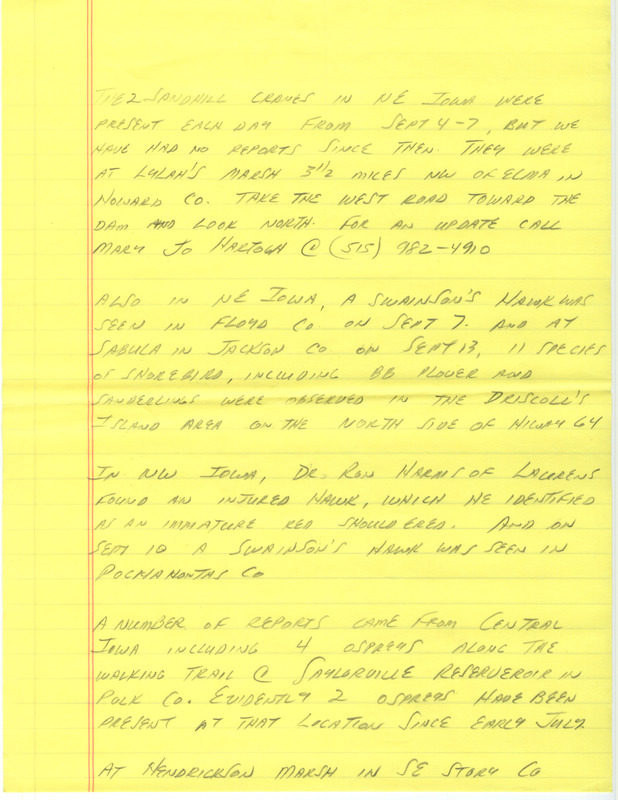 THE 2 SANDHILL CRANES IN NE IOWA WERE
PRESENT EACH DAY FROM SEPT 4-7, BUT WE
HAVE HAD NO REPORTS SINCE THEN. THEY WERE
AT LYLAH'S MARSH 3 1/2 MILES NW OF ELMA IN
HOWARD CO. TAKE THE WEST ROAD TOWARD THE
DAM AND LOOK NORTH. FOR AN UPDATE CALL
MARY JO HARTOGH @ (515) 982-4910
ALSO IN NE IOWA, A SWAINSON'S HAWK WAS
SEEN IN FLOYD CO ON SEPT 7. AND AT
SABULA IN JACKSON CO ON SEPT 13, 11 SPECIES
OF SHOREBIRD, INCLUDING BB PLOVER AND
SANDERLINGS WERE OBSERVED IN THE DRISCOLL'S
ISLAND AREA ON THE NORTH SIDE OF HIWAY 64
IN NW IOWA, DR. RON HARMS OF LAURENS
FOUND AN INTURED HAWK, WHICH HE IDENTIFIED
AS AN IMMATURE RED SHOULDERED. AND ON
SEPT 10 A SWAINSON'S HAWK WAS SEEN IN
POCHAHONTAS CO
A NUMBER OF REPORTS CAME FROM CENTRAL
IOWA INCLUDING 4 OSPREYS ALONG THE
WALKING TRAIL @ SAYLORVILLE RESERVEROIR IN
POLK CO. EVIDENTLY 2 OSPREYS HAVE BEEN
PRESENT AT THAT LOCATION SINCE EARLY JULY
AT HENDRICKSON MARSH IN SE STORY CO